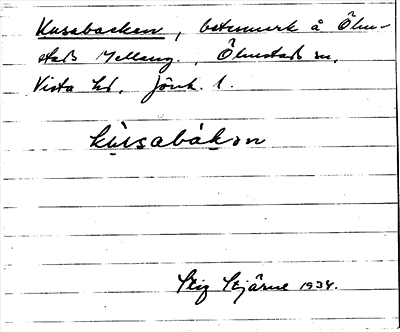 Kusabacken, betesmark å Ölm-
stads Mellang., Ölmstads sn,
Vista hd, Jönk. l.
kùsabàkən
Stig Stjärne 1934.